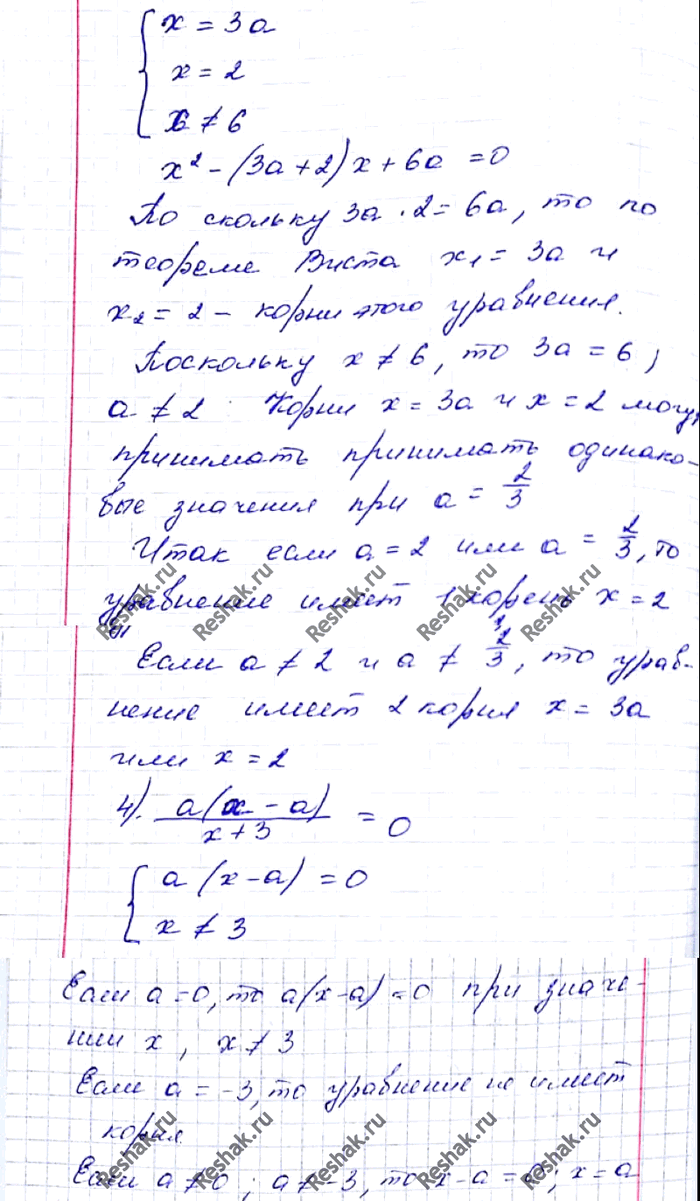 x = 3a
x = 2
x ≠ 6
x² - (3a + 2)x + 6a = 0
По скольку 3a · 2 = 6a, то по
теореме Виета x₁ = 3a и
x₂ = 2 - корни этого уравнения.
Поскольку x ≠ 6, то 3a = 6;
a ≠ 2. Корни x = 3a и x = 2 могут
принимать принимать одинако-
вые значения при a = 2/3
Итак если a = 2 или a = 2/3, то
уравнение имеет 1 корень x = 2
Если a ≠ 2 и a ≠ 2/3, то урав-
нение имеет 2 корня x = 3a
или x = 2
4). a(x - a)/(x + 3) = 0
a(x - a) = 0
x ≠ 3
Если a = 0, то a(x-a) = 0 при значе-
нии x, x ≠ 3
Если a = -3, то уравнение не имеет
корня
Если a ≠ 0; a ≠ -3, то x - a = 0, x = a
Reshak.ru Reshak.ru Reshak.ru Reshak.ru Reshak.ru
Reshak.ru Reshak.ru Reshak.ru Reshak.ru Reshak.ru